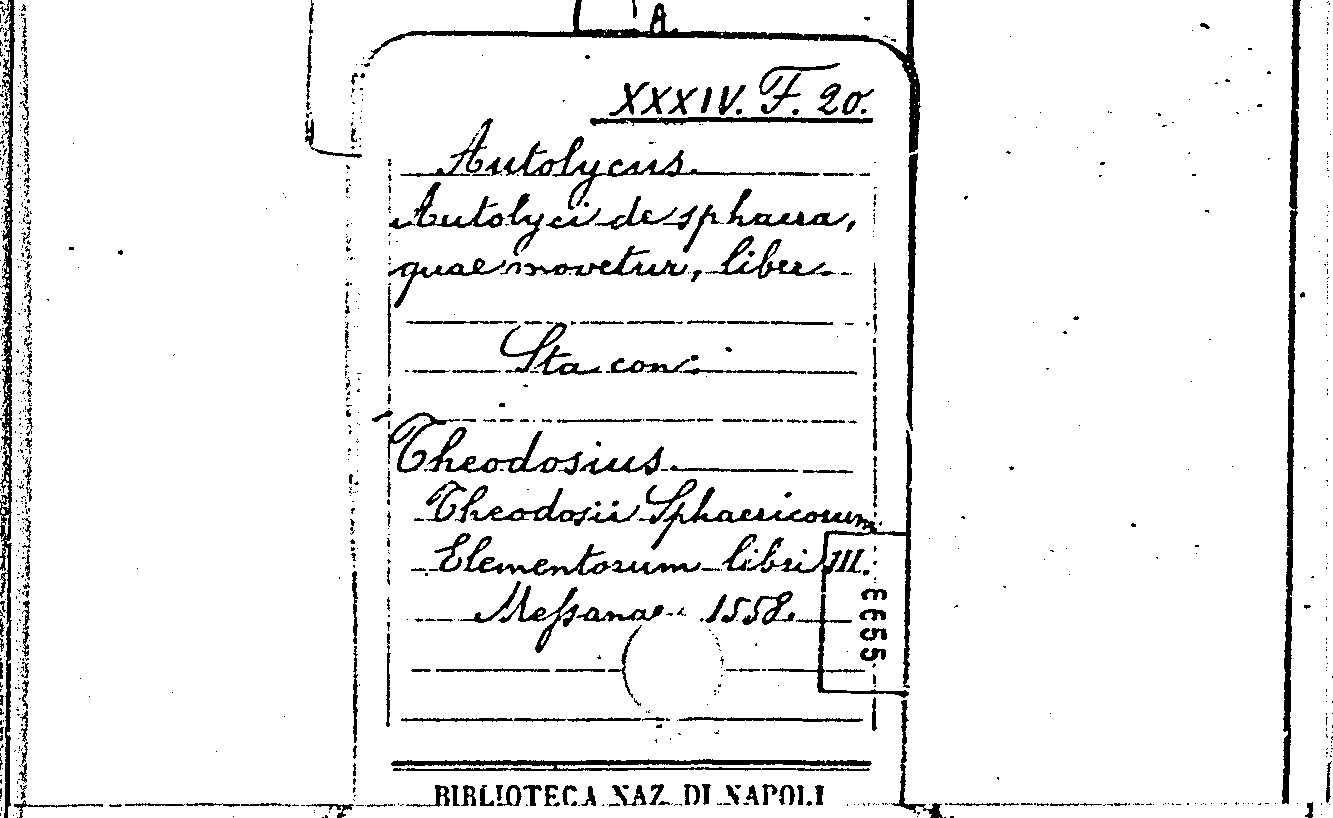 A.
XXXIV. F. 20.
Autolycus.
Autolyci de sphaera,
quae movetur, liber
Sta con:
Theodosius.
Theodosii Sphaericorum
Elementorum libri III.
Meſsanae 1558.
BIBLIOTECA NAZ. DI NAPOLI